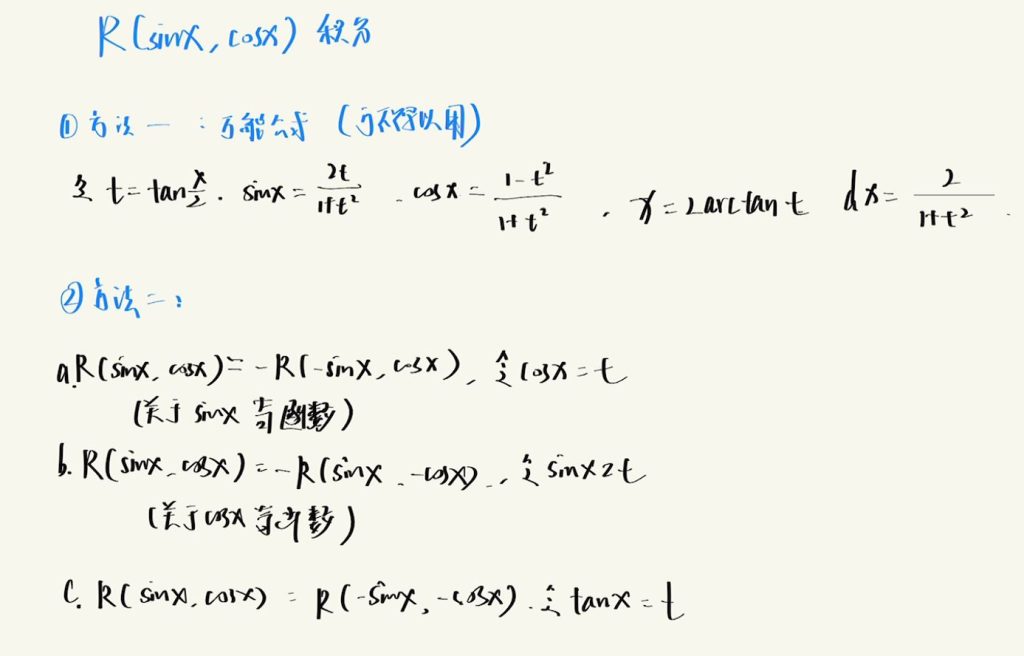 R(sinx, cosx) 积分
① 方法一：万能公式（万不得以用）
令 t=tan x/2 . sinx = 2t/(1+t²) . cosx = (1-t²)/(1+t²) , x=2arctant dx= 2/(1+t²) .
② 方法二：
a.R(sinx, cosx)=-R(-sinx, cosx), 令cosx=t
(关于 sinx 奇函数)
b. R(sinx, cosx)=-R(sinx, -cosx), 令 sinx=t
(关于cosx 奇函数)
C. R(sinx, cosx) = R(-sinx, -cosx). 令 tanx=t